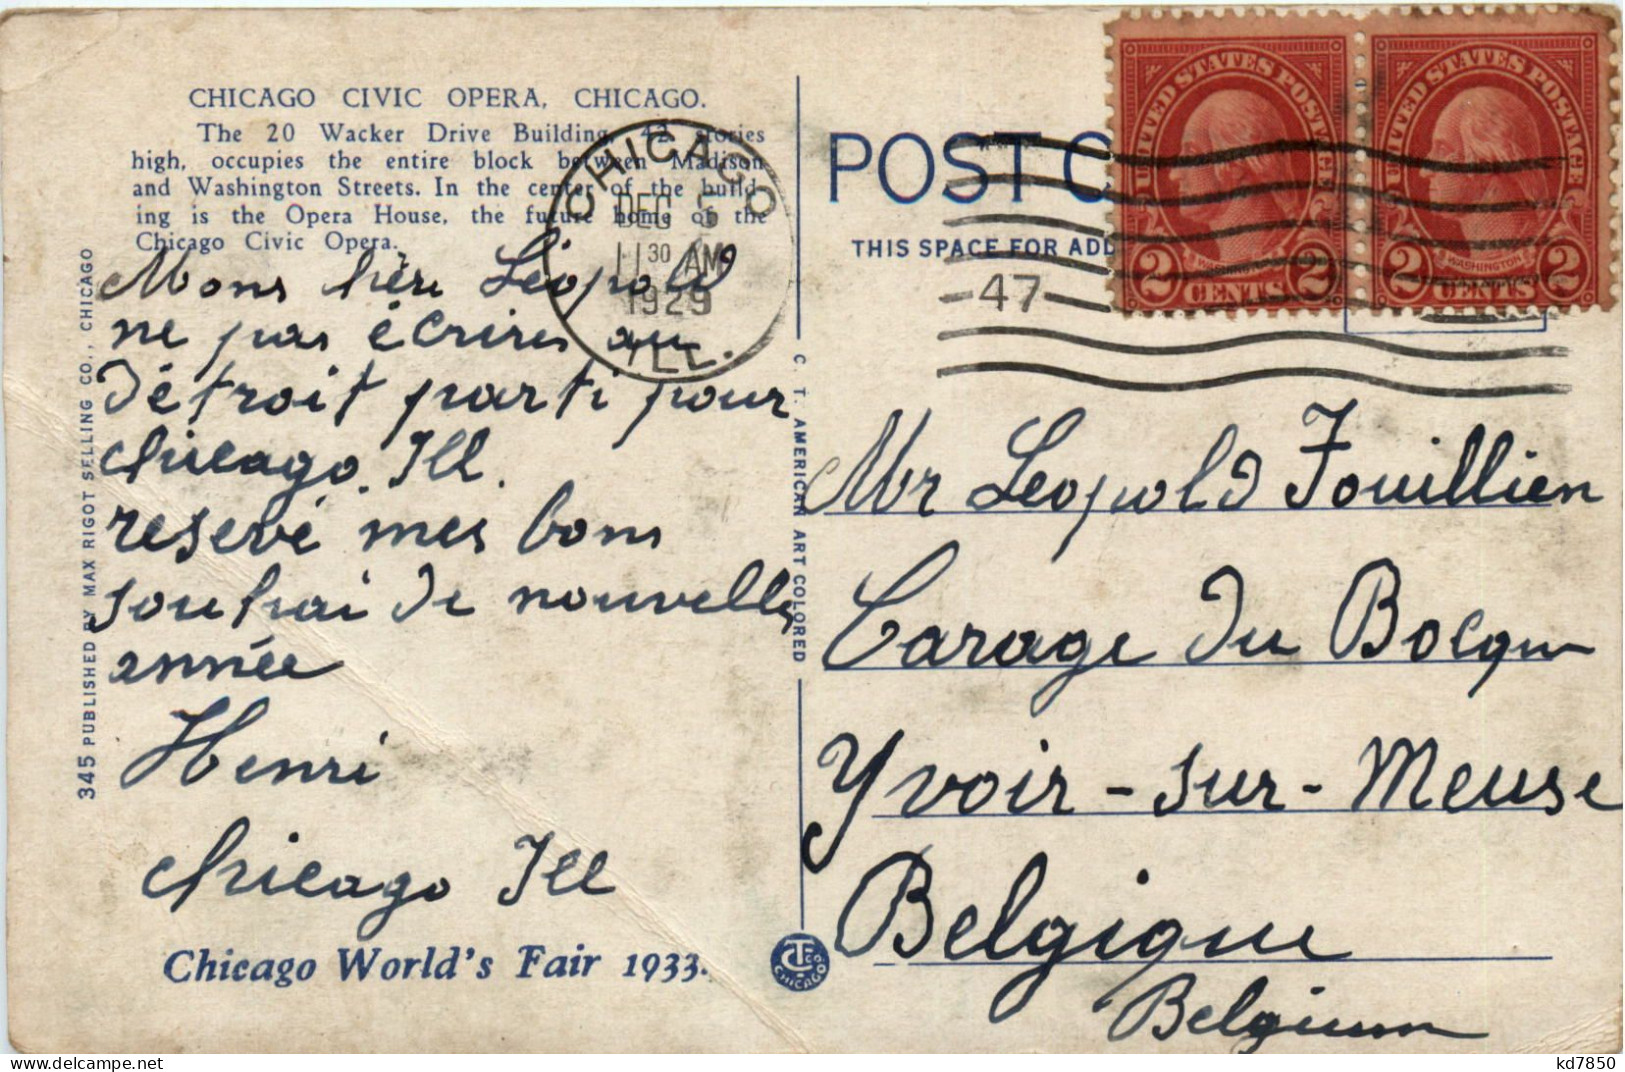 CHICAGO CIVIC OPERA, CHICAGO.
The 20 Wacker Drive Building, 42 stories
high, occupies the entire block between Madison
and Washington Streets. In the center of the build-
ing is the Opera House, the future home of the
Chicago Civic Opera.
Mons frère Léopold
ne pas écrires au
Détroit parti pour
Chicago. Ill.
resevé mes bons
souhai de nouvelle
année
Henri
Chicago Ill
Chicago World's Fair 1933.
345 PUBLISHED BY MAX RIGOT SELLING CO., CHICAGO
C. T. AMERICAN ART COLORED
CHICAGO
DEC 5
11 30 AM
1929
ILL.
POST C
THIS SPACE FOR ADD
47
UNITED STATES POSTAGE
WASHINGTON
2 CENTS 2
UNITED STATES POSTAGE
WASHINGTON
2 CENTS 2
Mr Leopold Fouillien
Garage Du Bocqu
Yvoir-sur-Meuse
Belgique
Belgium
CHICAGO
kd7850